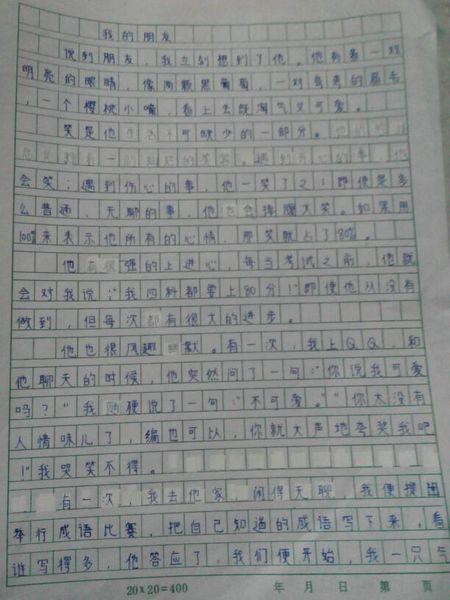 我的朋友
说到朋友，我立刻想到了他。他有着一对
明亮的眼睛，像两颗黑葡萄，一对弯弯的眉毛
，一个樱桃小嘴，看上去既淘气又可爱。
笑是他 不可缺少的一部分。
遇到开心的事，他
会笑；遇到伤心的事，他一笑了之；即使是多
么普通、无聊的事，他也会捧腹大笑。如果用
100%来表示他所有的心情，那笑就占了80%。
他有很强的上进心，每当考试之前，他就
会对我说：“我四科都要上80分！”即使他从没有
做到，但每次都有很大的进步。
他也很风趣幽默。有一次，我上QQ，和
他聊天的时候，他突然问了一句：“你说我可爱
吗？”我 便说了一句：“不可爱。”“你太没有
人情味儿了，编也可以，你就大声地夸奖我吧
！”我哭笑不得。
有一次，我去他家，闲得无聊，我便提出
举行成语比赛，把自己知道的成语写下来，看
谁写得多，他答应了，我们便开始，我一只气
20×20=400 年 月 日 第 页